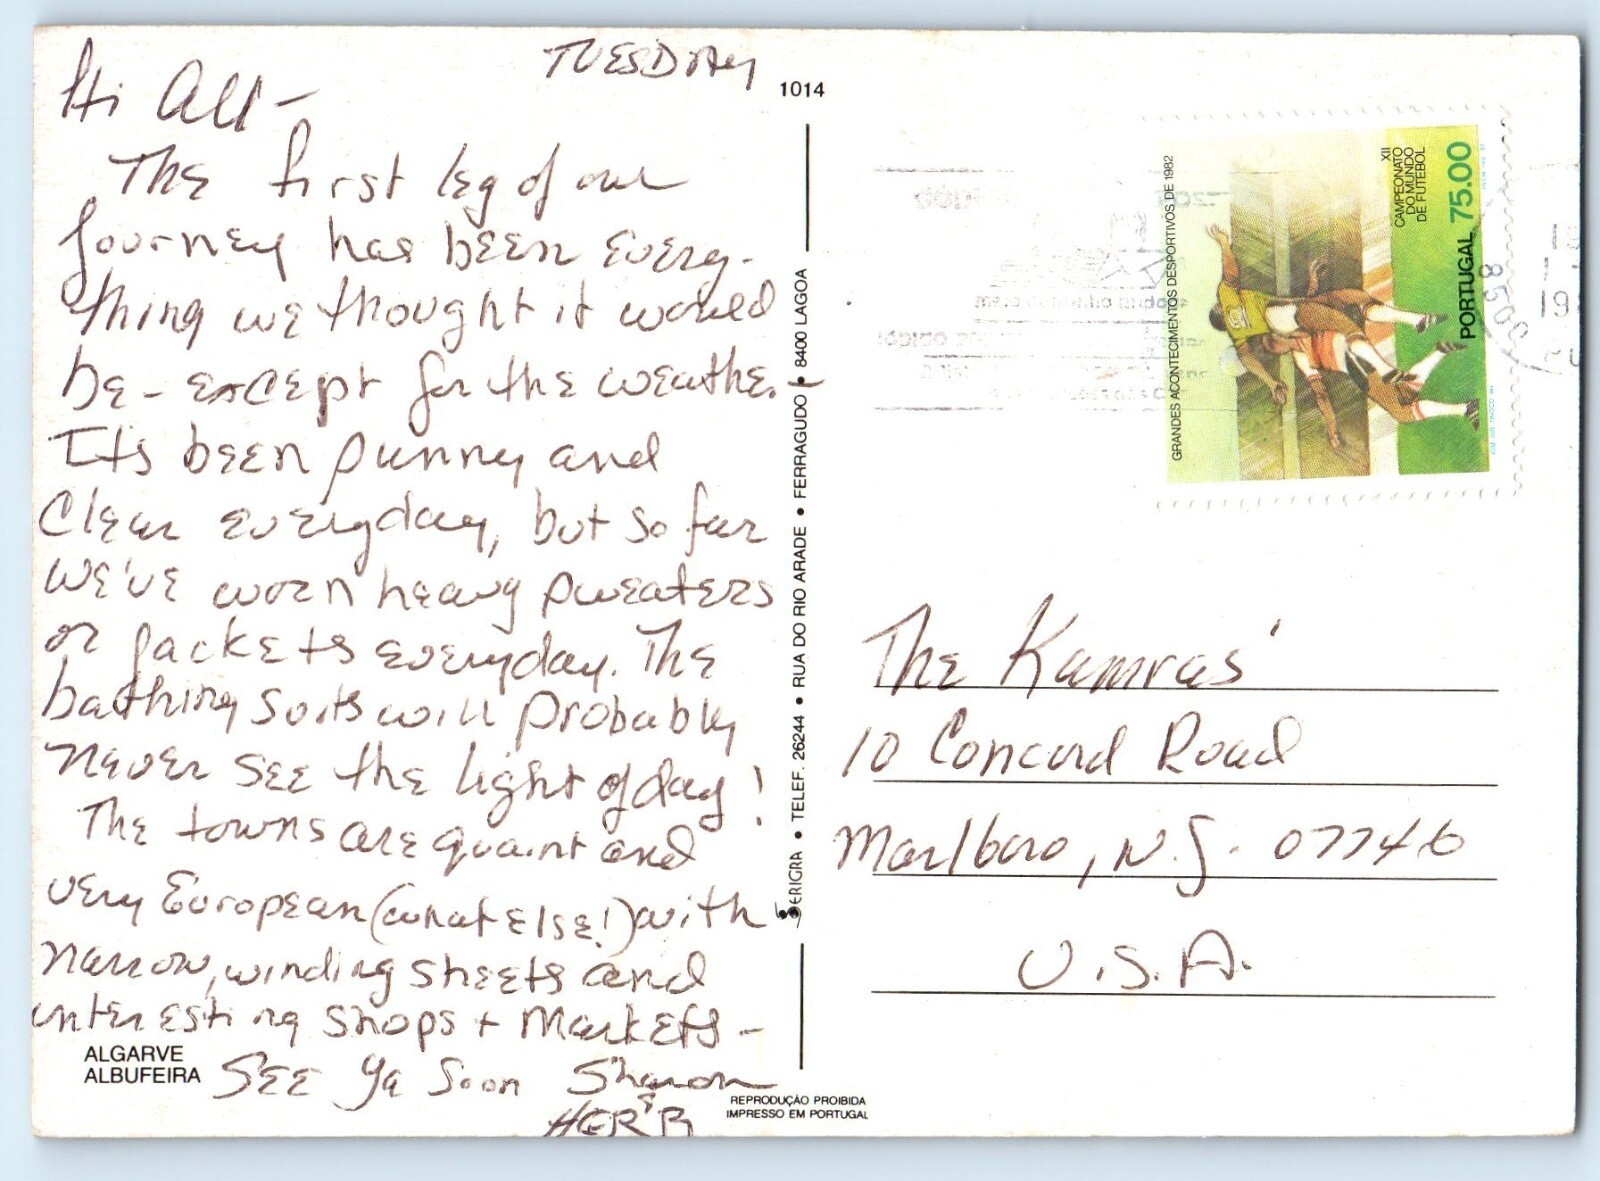 TUESDAY
Hi All -
The first leg of our
journey has been every-
thing we thought it would
be - except for the weather -
Its been sunny and
Clear everyday, but so far
we've worn heavy sweaters
or jackets everyday. The
bathing suits will probably
never see the light of day!
The towns are quaint and
very European (what else!) with
narrow, winding streets and
interesting shops + markets -
See ya soon Sharon
& HERB
ALGARVE
ALBUFEIRA
1014
SERIGRA • TELEF. 26244 • RUA DO RIO ARADE • FERRAGUDO • 8400 LAGOA
REPRODUÇÃO PROIBIDA
IMPRESSO EM PORTUGAL
GRANDES ACONTECIMENTOS DESPORTIVOS DE 1982
XII
CAMPEONATO
DO MUNDO
DE FUTEBOL
PORTUGAL 75.00
8500
The Kamras'
10 Concord Road
Marlboro, N.J. 07746
U.S.A.